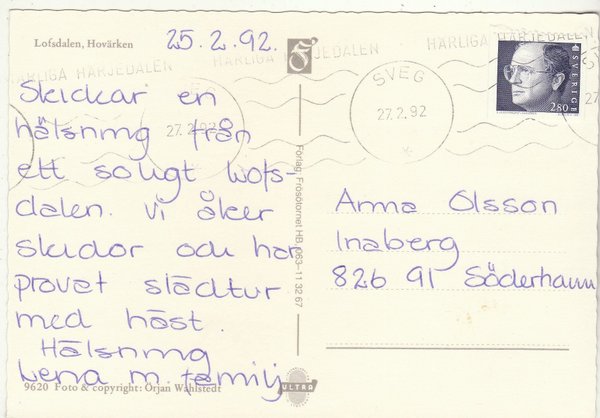 Lofsdalen, Hovärken
25.2.92.
HÄRLIGA HÄRJEDALEN
HÄRLIGA HÄRJEDALEN
SVEG
27.2.92
27.2.92
SVERIGE
280
Skickar en
hälsning från
ett soligt Lofs-
dalen. Vi åker
skidor och har
provat slädtur
med häst.
Hälsning
Lena m. familj
Förlag Frösötornet HB, 063-11 32 67
Anna Olsson
Inaberg
826 91 Söderhamn
9620 Foto & copyright: Örjan Wahlstedt
ULTRA